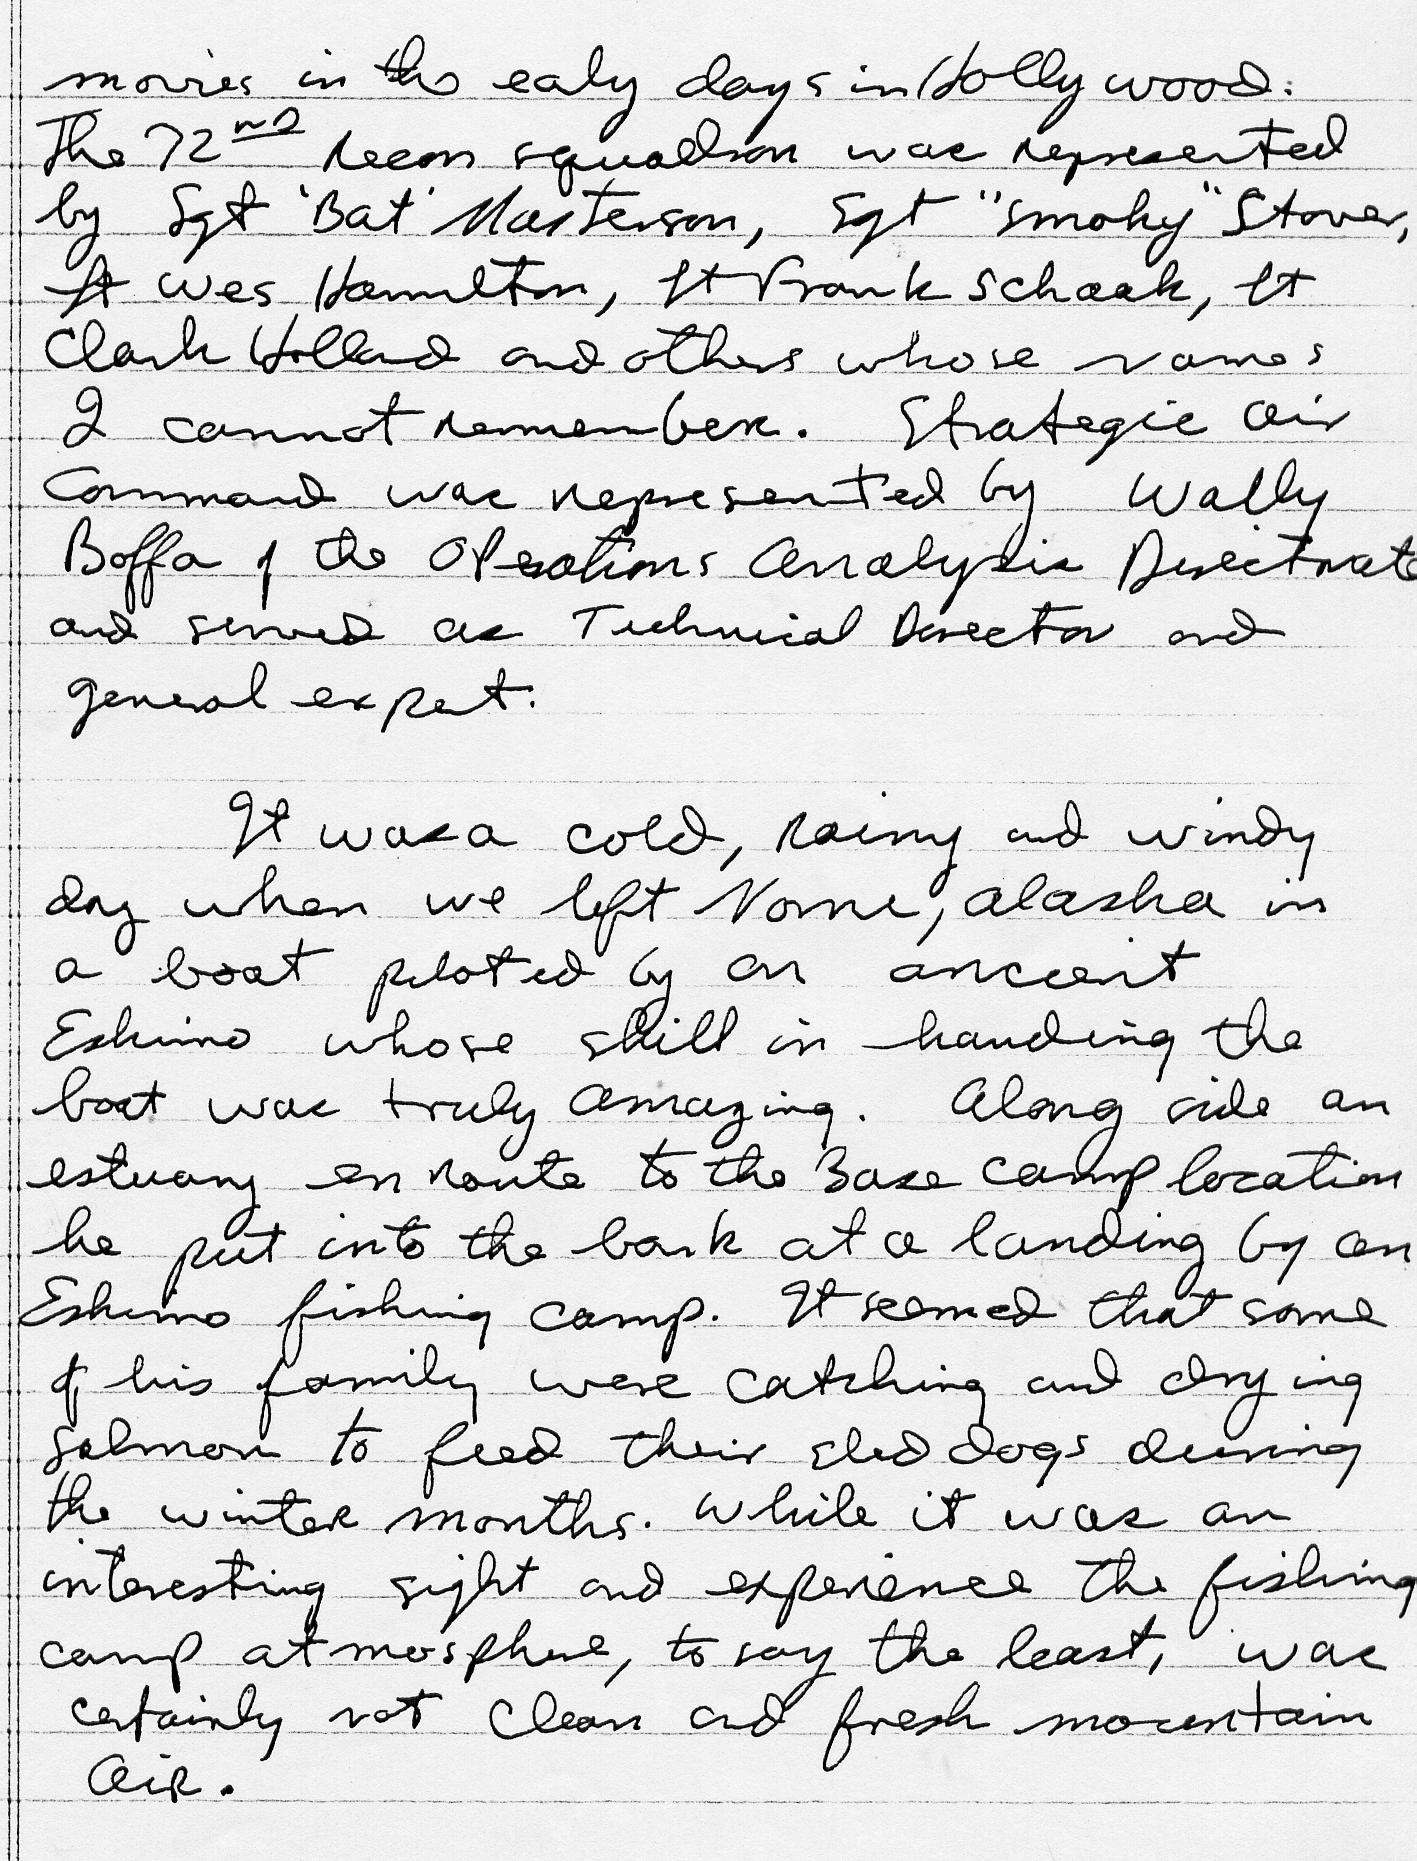 movies in the ealy days in Hollywood.
The 72nd Recon squadron was represented
by Sgt 'Bat' Masterson, Sgt "Smoky" Stover,
Lt Wes Hamilton, Lt Frank Schaak, Lt
Clark Holland and others whose names
I cannot remember. Strategic Air
Command was represented by Wally
Boffa of the Operations Analysis Directorate
and served as Technical Director and
general expert.
It was a cold, rainy and windy
day when we left Nome, Alaska in
a boat piloted by an ancient
Eskimo whose skill in handing the
boat was truly amazing. Along side an
estuary en route to the Base camp location
he put into the bank at a landing by an
Eskimo fishing camp. It seemed that some
of his family were catching and drying
salmon to feed their sled dogs during
the winter months. While it was an
interesting sight and experience the fishing
camp atmosphere, to say the least, was
certainly not clean and fresh mountain
air.